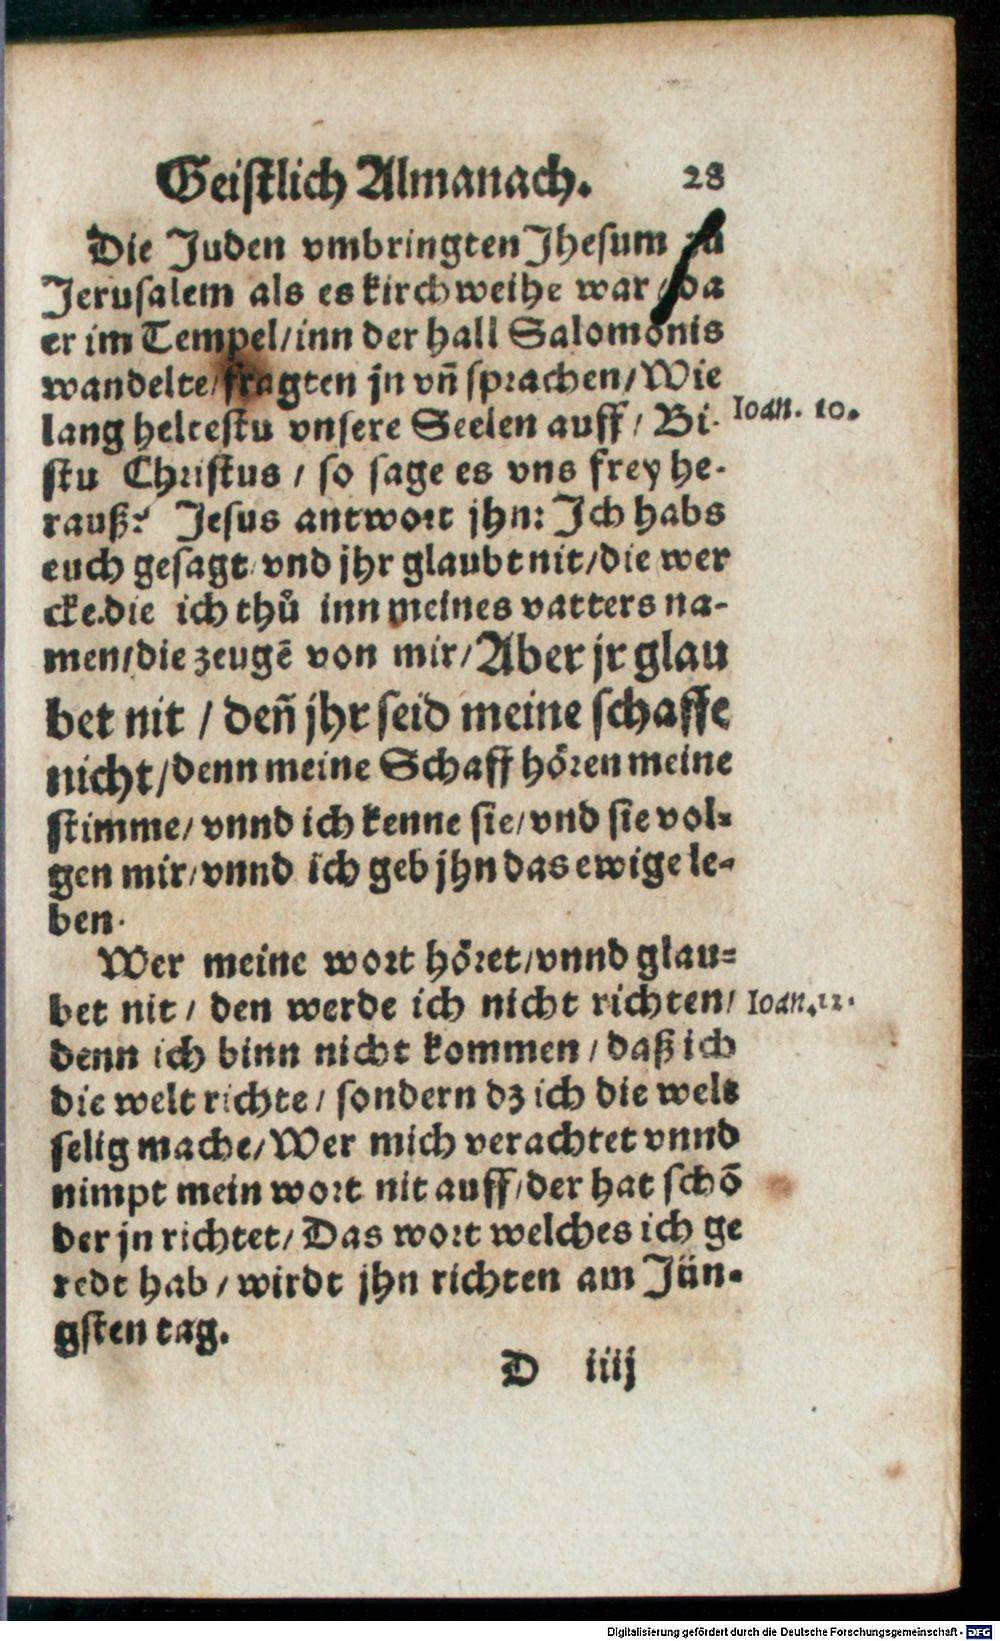 Geistlich Almanach. 28
Die Juden vmbringten Jhesum zu
Jerusalem als es kirchweihe war / da
er im Tempel / inn der hall Salomonis
wandelte / fragten jn vñ sprachen / Wie
lang heltestu vnsere Seelen auff / Bi- Ioan. 10.
stu Christus / so sage es vns frey he-
rauß? Jesus antwort jhn: Ich habs
euch gesagt / vnd jhr glaubt nit / die wer
cke die ich thů inn meines vatters na-
men / die zeugē von mir / Aber jr glau
bet nit / deñ jhr seid meine schaffe
nicht / denn meine Schaff hören meine
stimme / vnnd ich kenne sie / vnd sie vol-
gen mir / vnnd ich geb jhn das ewige le-
ben.
Wer meine wort höret / vnnd glau-
bet nit / den werde ich nicht richten / Ioan. 12.
denn ich binn nicht kommen / daß ich
die welt richte / sondern dz ich die welt
selig mache / Wer mich verachtet vnnd
nimpt mein wort nit auff / der hat schō
der jn richtet / Das wort welches ich ge
redt hab / wirdt jhn richten am Jün-
gsten tag.
D iiij
Digitalisierung gefördert durch die Deutsche Forschungsgemeinschaft - DFG